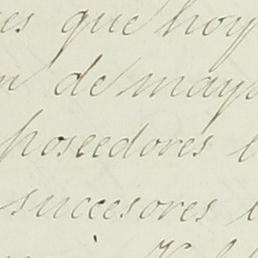 es que hoy
de mayo
poseedores
succesores